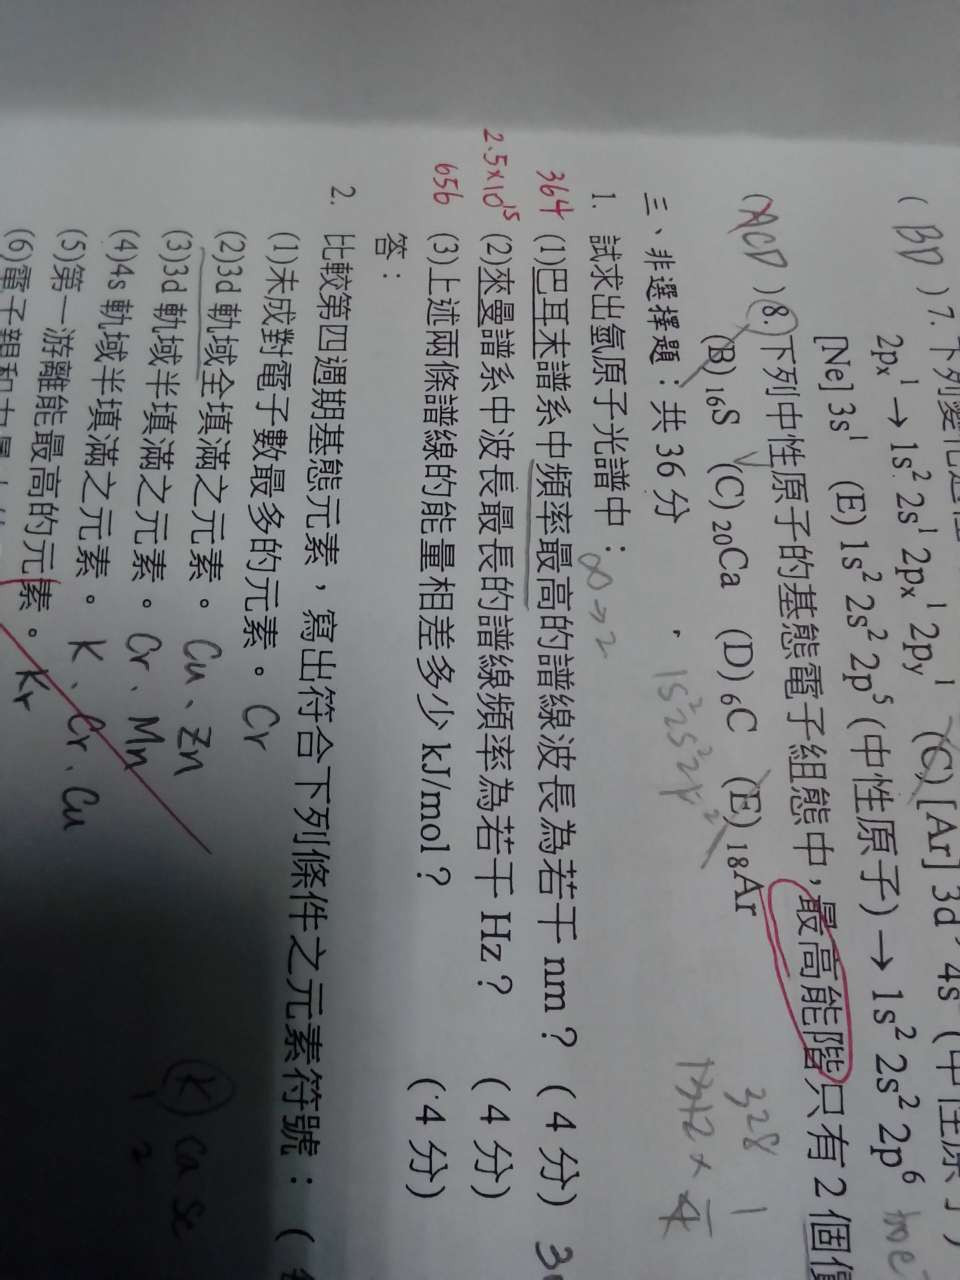 (BD) 7. 下列變化過程
2px¹ → 1s² 2s¹ 2px¹ 2py¹ (C) [Ar] 3d⁵ 4s (中性原子)
[Ne] 3s¹ (E) 1s² 2s² 2p⁵ (中性原子) → 1s² 2s² 2p⁶
(ACD) 8. 下列中性原子的基態電子組態中,最高能階只有 2 個價
(B) ₁₆S (C) ₂₀Ca (D) ₆C (E) ₁₈Ar
1s²2s²2p²
328 1
1312 × 4
三、非選擇題:共 36 分
1. 試求出氫原子光譜中:
∞→2
364 (1)巴耳末譜系中頻率最高的譜線波長為若干 nm? (4 分)
2.5×10¹⁵ (2)來曼譜系中波長最長的譜線頻率為若干 Hz? (4 分)
656 (3)上述兩條譜線的能量相差多少 kJ/mol? (4 分)
答:
2. 比較第四週期基態元素,寫出符合下列條件之元素符號:(
(1)未成對電子數最多的元素。 Cr
(2)3d 軌域全填滿之元素。 Cu、Zn
(3)3d 軌域半填滿之元素。 Cr、Mn
(4)4s 軌域半填滿之元素。 K、Cr、Cu
(5)第一游離能最高的元素。 Kr
(K) Ca Sc
1 2
(6)電子親和力最